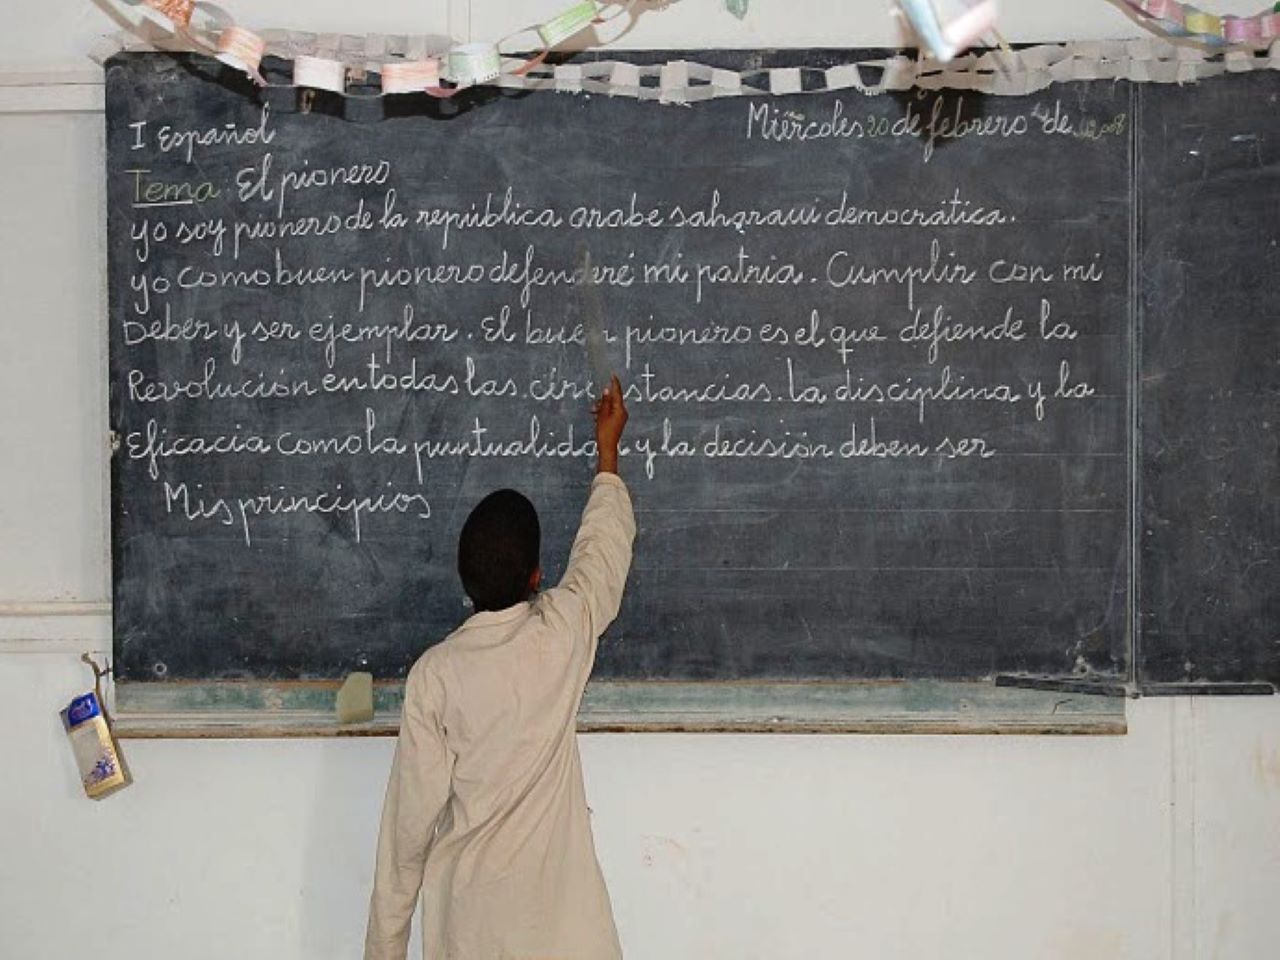 I Español
Miércoles 20 de febrero de 2008
Tema: El pionero
yo soy pionero de la república arabe sahgraui democrática.
yo como buen pionero defenderé mi patria. Cumplir con mi
Deber y ser ejemplar. El buen pionero es el que defiende la
Revolución en todas las circustancias. La disciplina y la
Eficacia como la puntualidad y la decisión deben ser
Mis principios